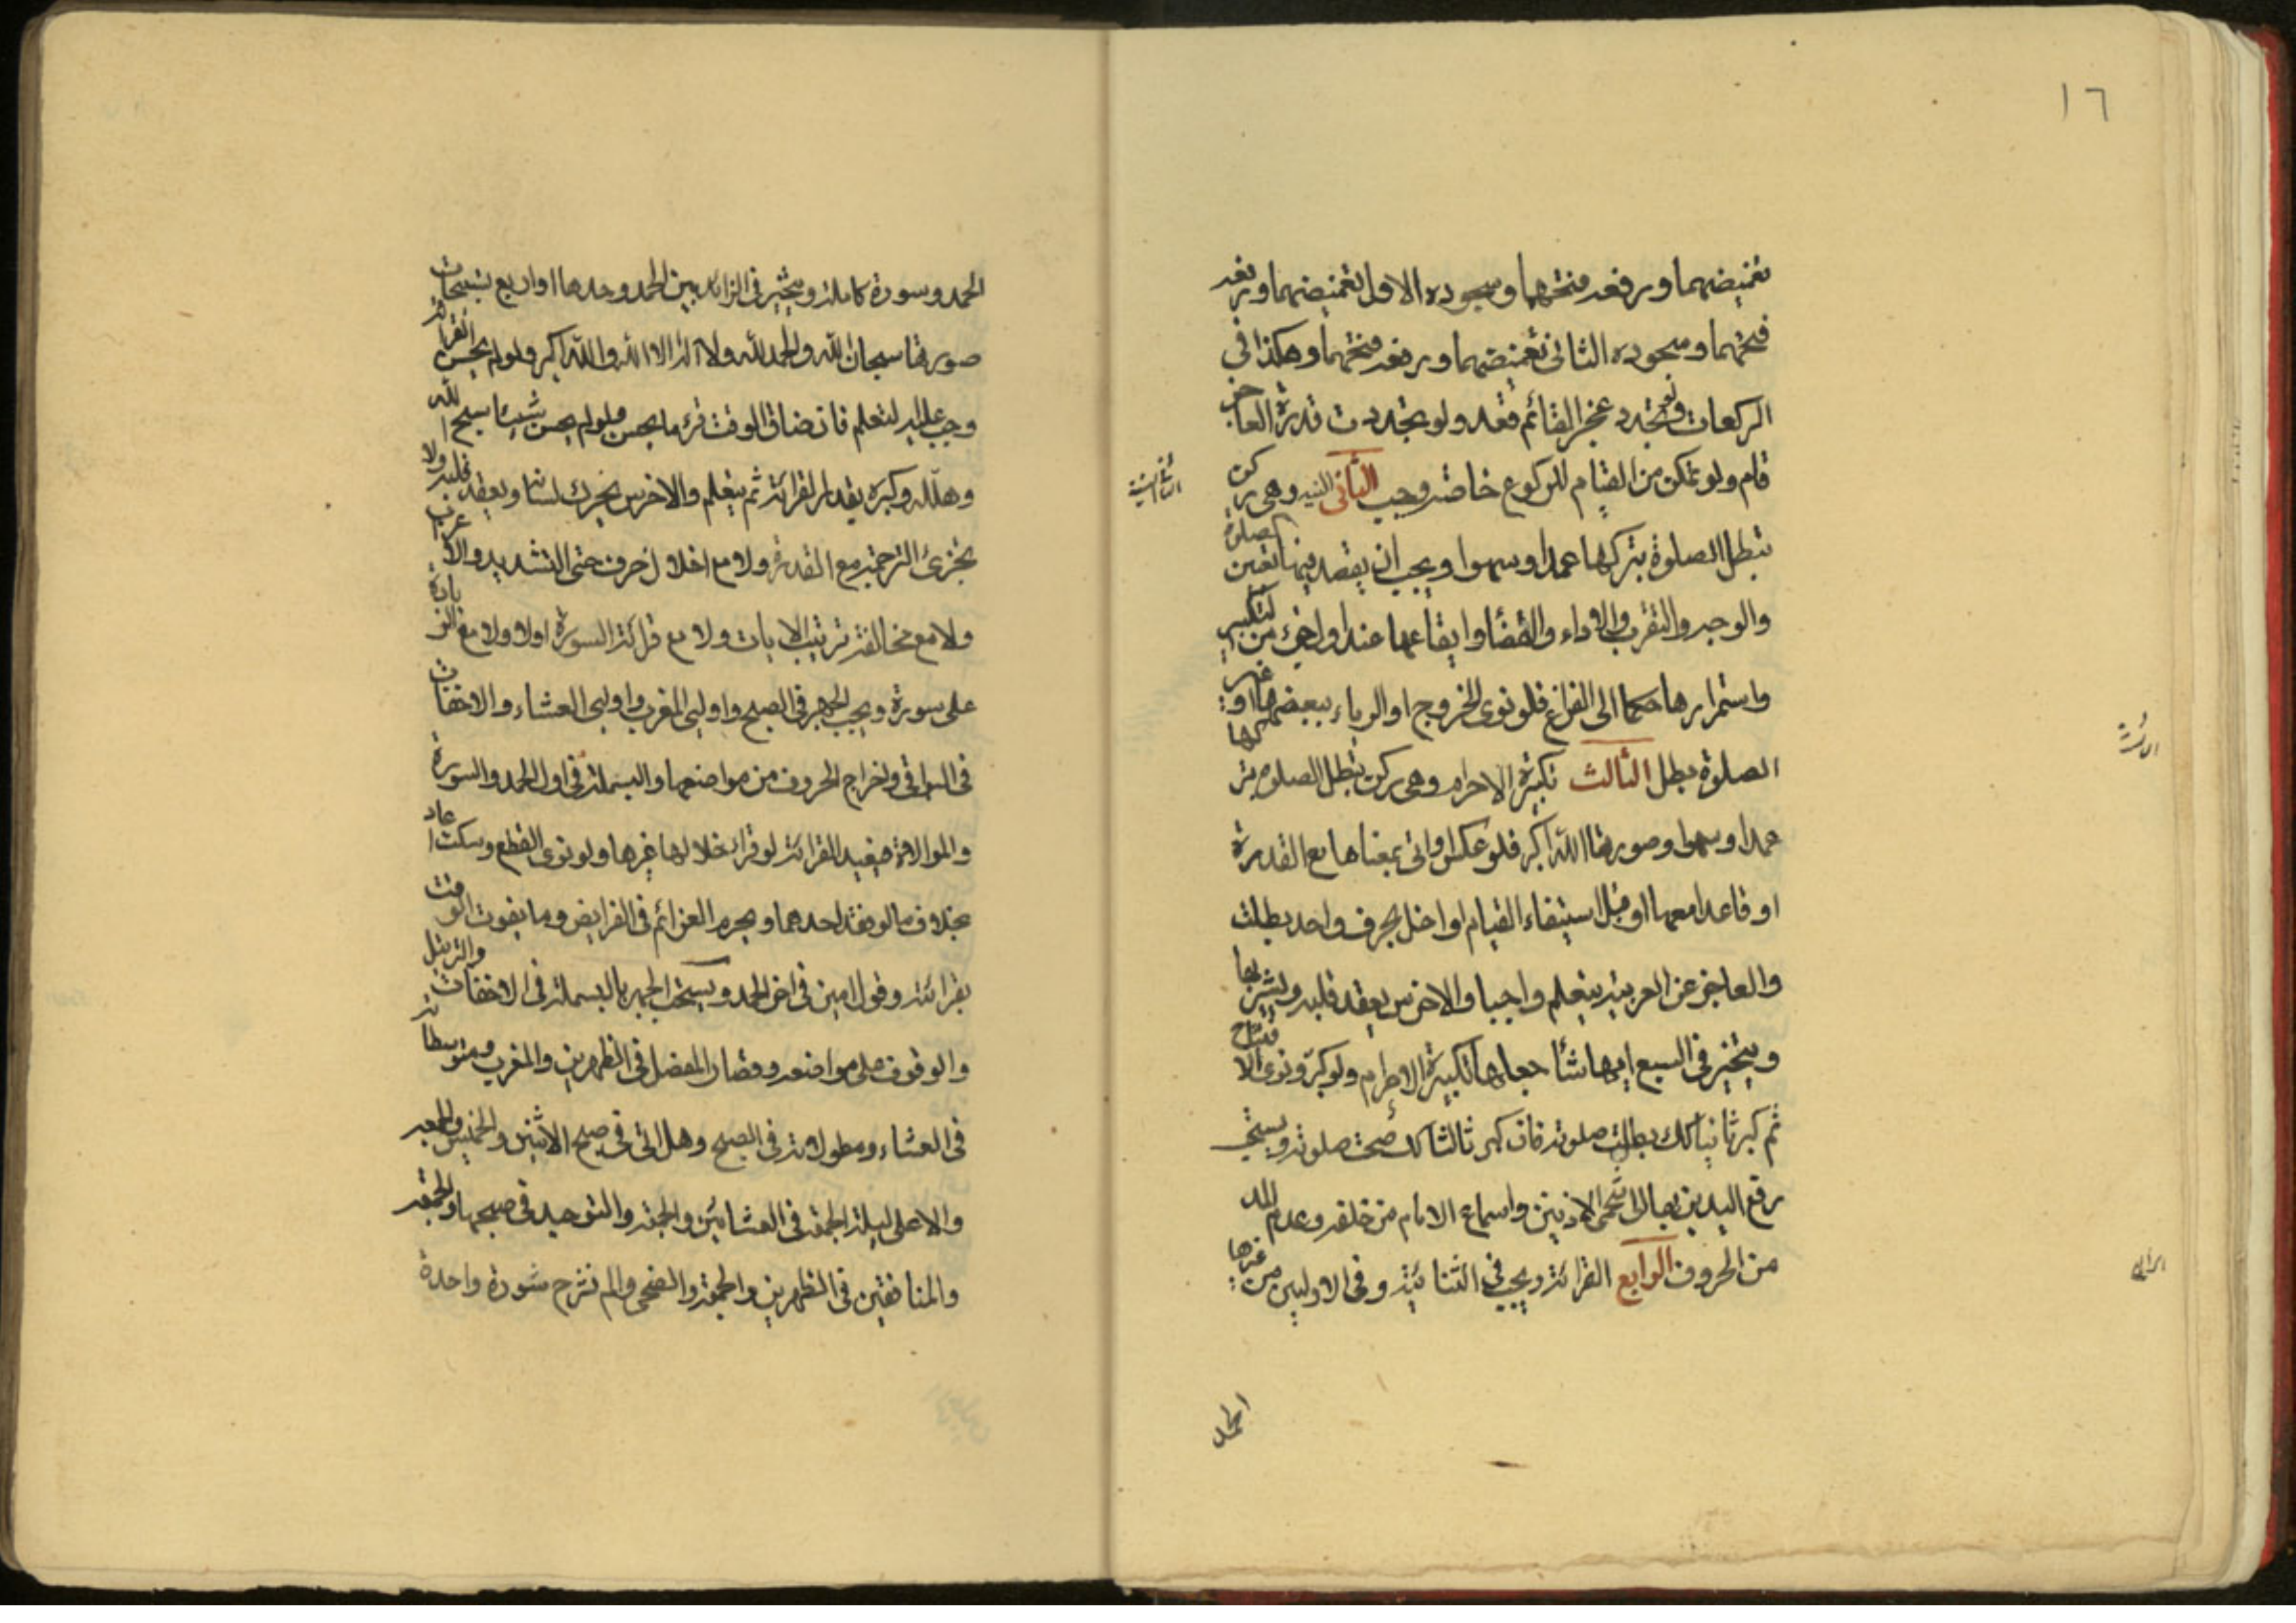 ١٦
تغميضهما ورفعه فتحهما وسجوده الاول تغميضهما ورفعه
فتحهما وسجوده الثانى تغميضهما ورفعه فتحهما وهكذا فى
الركعات ولو تجدد عجز القائم قعد ولو تجددت قدرة العاجز
قام ولو تمكن من القيام للركوع خاصة وجب الثانى النية وهى ركن
تبطل الصلوة بتركها عمدا وسهوا ويجب ان يقصد فيها تعين الصلوة
والوجه والتقرب والاداء والقضا وايقاعها عند اول جزء من التكبير
واستمرارها حكما الى الفراغ فلو نوى الخروج او الرياء ببعضها او غير
الصلوة بطل الثالث تكبيرة الاحرام وهى ركن تبطل الصلوة بتركها
عمدا وسهوا وصورتها الله اكبر فلو عكس او اتى بمعناها مع القدرة
او قاعدا معها او قبل استيفاء القيام او اخل بحرف واحد بطلت
والعاجز عن العربية يتعلم واجبا والاخرس يعقد قلبه ويشير بها
ويتخير فى السبع ايها شأ جعلها تكبيرة الاحرام ولو كبر ونوى الافتتاح
ثم كبر ثانيا كك بطلت صلوته فان كبر ثالثا كك صحت صلوته ويستحب
رفع اليدين بها الى شحمتى الاذنين واسماع الامام من خلفه وعدم المد
من الحروف الرابع القرائة ويجب فى الثنائية وفى الاوليين من غيرها
الحمد
الحمد وسورة كاملة ويتخير فى الزائد بين الحمد وحدها او اربع تسبيحات
صورتها سبحان الله والحمد لله ولا اله الا الله والله اكبر ولو لم يحسن القرائة
وجب عليه التعلم فان ضاق الوقت قرء ما يحسن ولو لم يحسن شيئا سبح الله
وهلله وكبره بقدر القرائة ثم يتعلم والاخرس يحرك لسانه ويعقد قلبه ولا
يجزئ الترجمة مع القدرة ولا مع اخلال حرف حتى التشديد والاعراب
ولا مع مخالفة ترتيب الايات ولا مع قرائة السورة اولا ولا مع الزيادة
على سورة ويجب الجهر فى الصبح واوليى المغرب واوليى العشاء والاخفات
فى البواقى واخراج الحروف من مواضعها والبسملة فى اول الحمد والسورة
والموالاة فيعيد القرائة لو قرأ خلالها غيرها ولو نوى القطع وسكت اعاد
بخلاف ما لو فقد احدهما ويحرم العزائم فى الفرايض وما يفوت الوقت
بقرائته وقول امين فى اخر الحمد ويستحب الجهر بالبسملة فى الاخفات والترتيل
والوقوف على مواضعه وقصار المفصل فى الظهرين والمغرب ومتوسطاته
فى العشاء ومطولاته فى الصبح وهل اتى فى صبح الاثنين والخميس والجمعة
والاعلى ليلة الجمعة فى العشائين والجمعة والتوحيد فى صبحها والجمعة
والمنافقين فى الظهرين والجمعة والضحى والم نشرح سورة واحدة